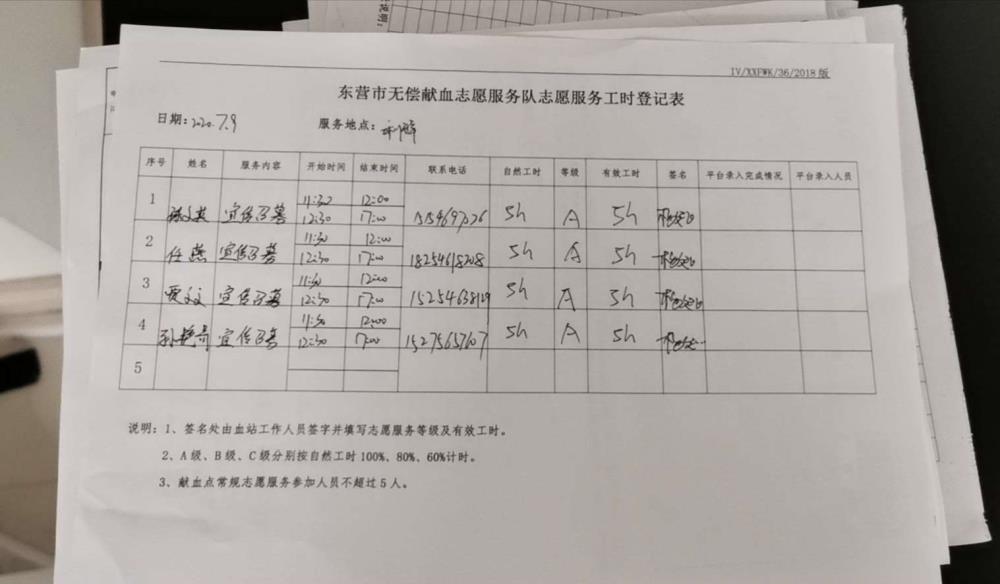 说明:
IV/XXFWK/36/2018版
东营市无偿献血志愿服务队志愿服务工时登记表
日期:2020.7.9 服务地点:
序号 姓名 服务内容 开始时间 结束时间 联系电话 自然工时 等级 有效工时 签名 平台录入完成情况 平台录入人员
1 宣传招募 11:30 12:00 5h A 5h
12:30 17:00
2 任燕 宣传招募 11:30 12:00 18254618208 5h A 5h
12:30 17:00
3 贾文文 宣传招募 11:30 12:00 5h A 5h
12:30 17:00
4 孙艳萍 宣传招募 11:30 12:00 15275657607 5h A 5h
12:30 17:00
5
说明:1、签名处由血站工作人员签字并填写志愿服务等级及有效工时。
2、A级、B级、C级分别按自然工时100%、80%、60%计时。
3、献血点常规志愿服务参加人员不超过5人。